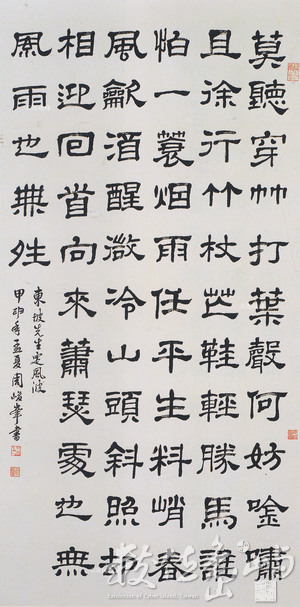 莫聽穿林打葉聲何妨唫嘯
且徐行竹杖芒鞋輕勝馬誰
怕一蓑烟雨任平生料峭春
風龡酒醒微冷山頭斜照却
相迎回首向來蕭瑟處也無
風雨也無晴
東坡先生定風波
甲申年孟夏周峯書